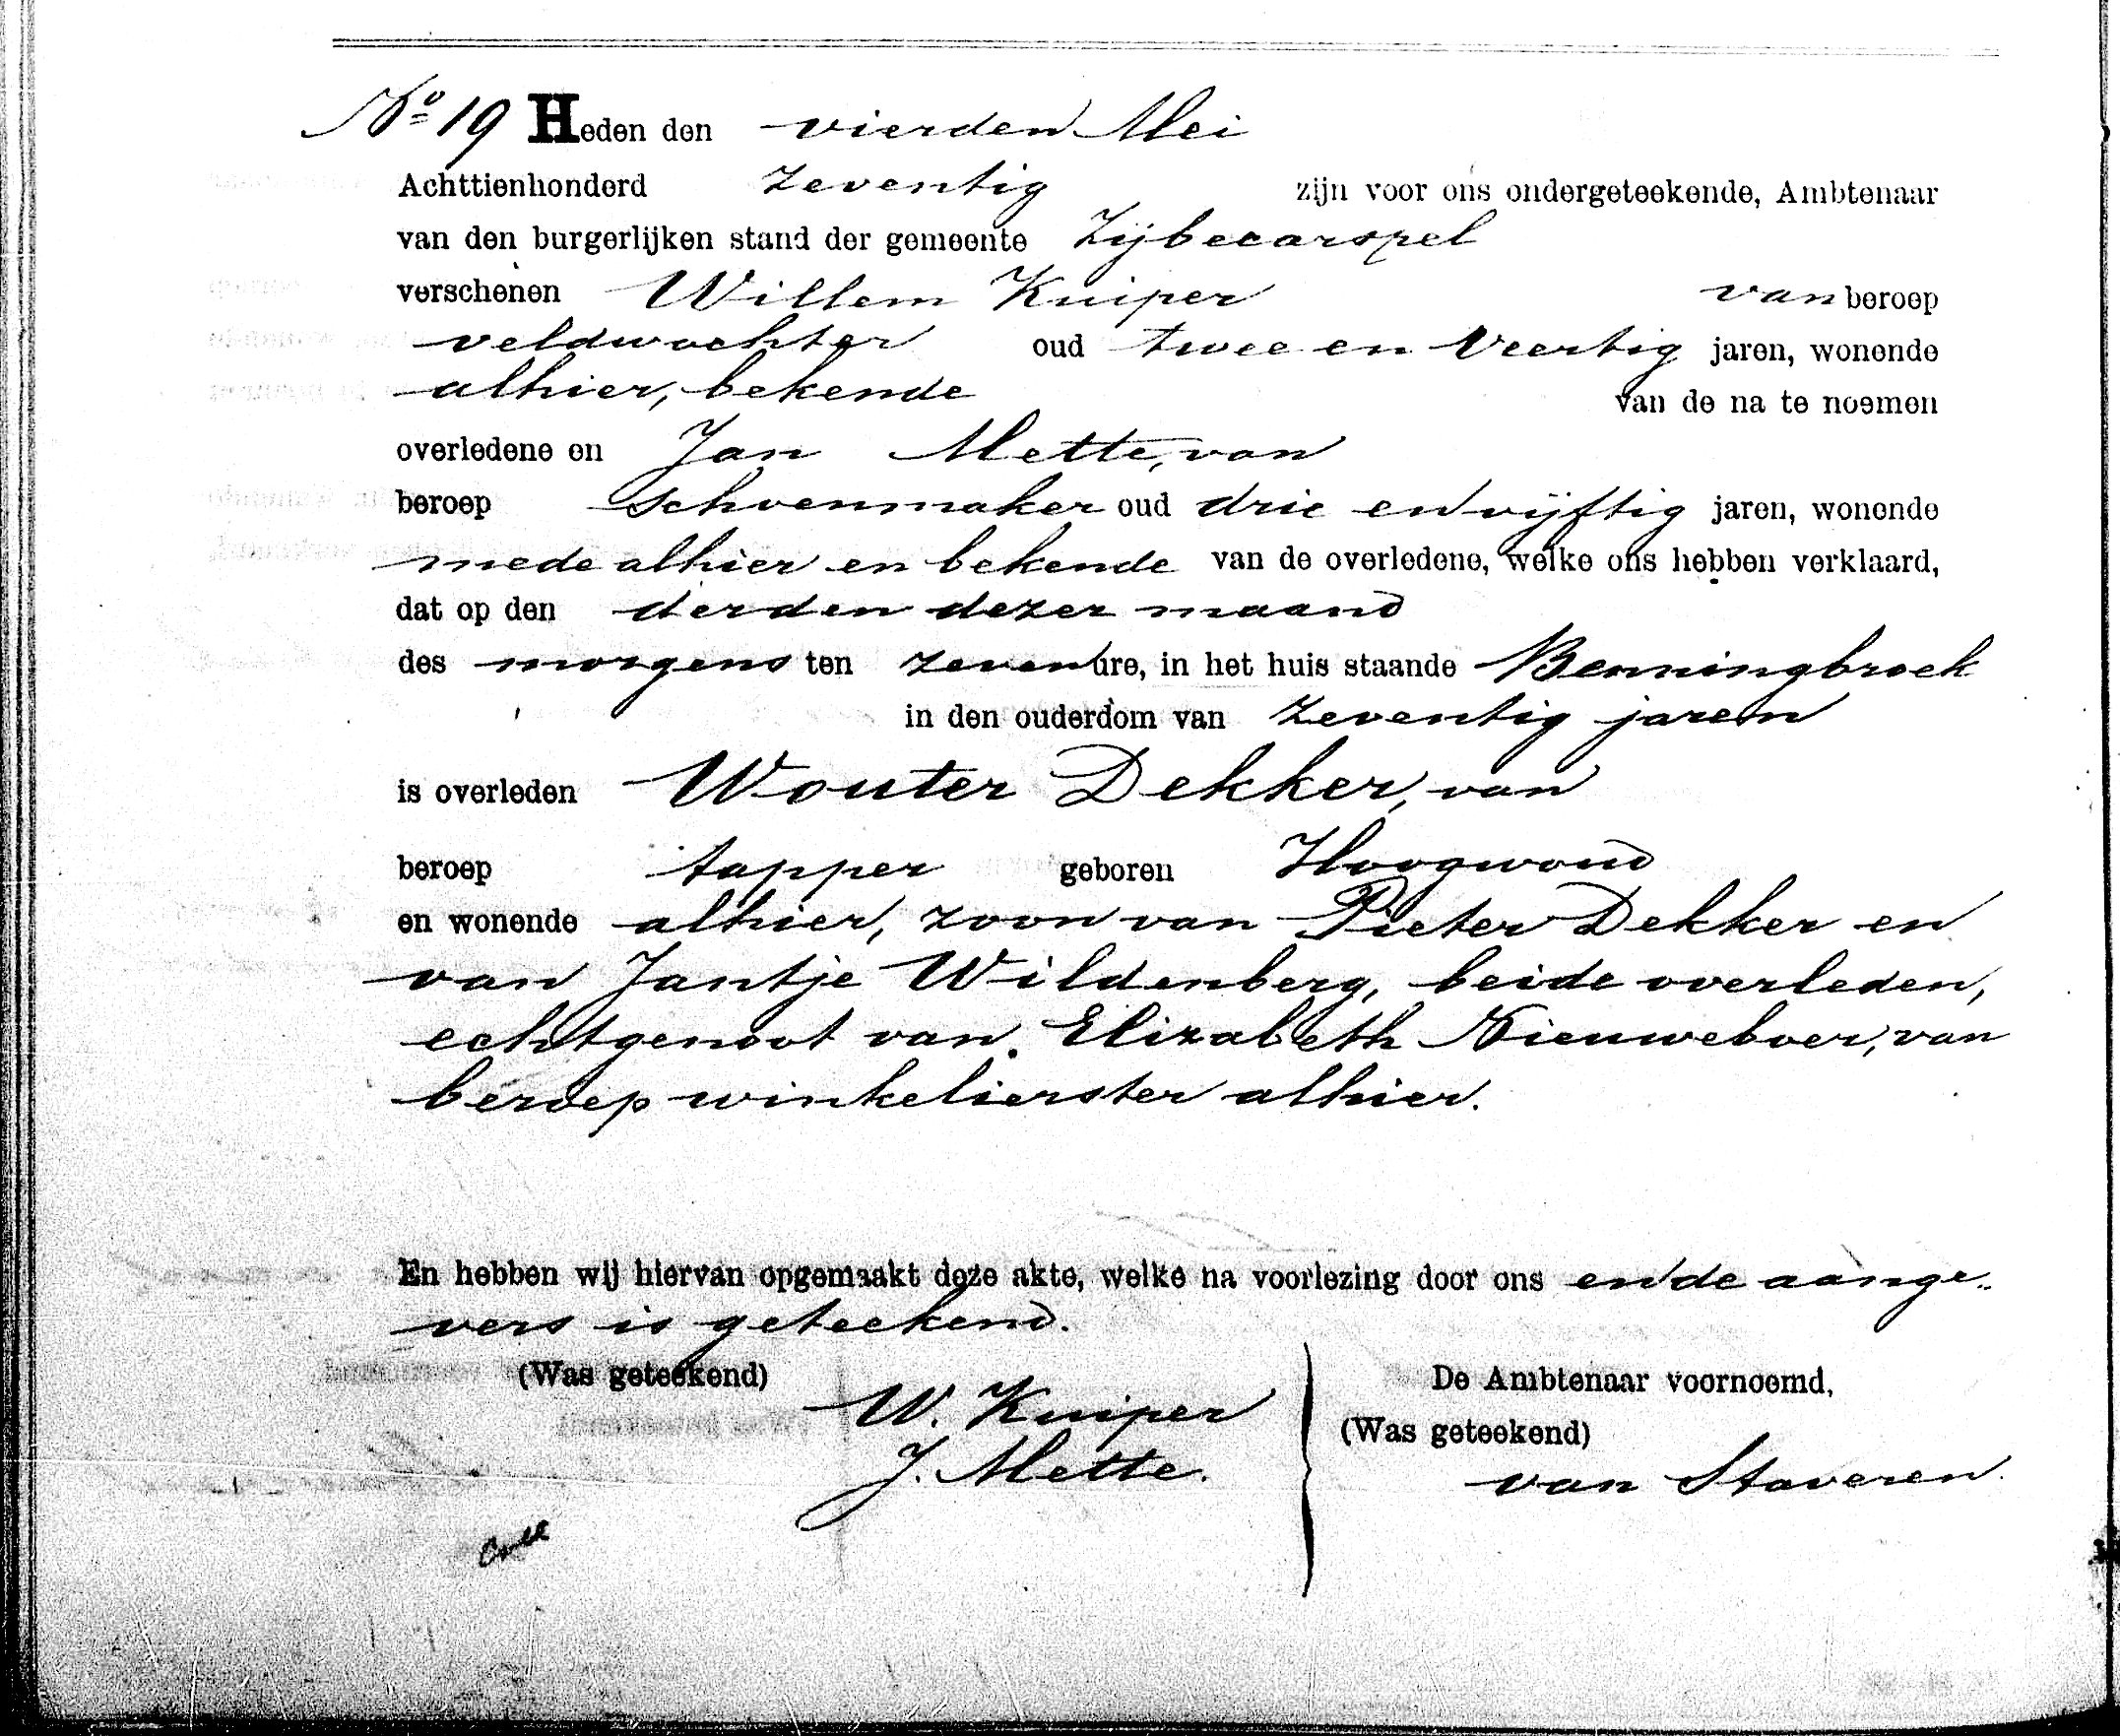 No 19 Heden den vierden Mei
Achttienhonderd zeventig zijn voor ons ondergeteekende, Ambtenaar
van den burgerlijken stand der gemeente Zijbecarspel
verschenen Willem Kuiper van beroep
veldwachter oud twee en Veertig jaren, wonende
alhier, bekende van de na te noemen
overledene en Jan Mette, van
beroep schoenmaker oud drie en vijftig jaren, wonende
mede alhier en bekende van de overledene, welke ons hebben verklaard,
dat op den derden dezer maand
des morgens ten zeven ure, in het huis staande Benningbroek
in den ouderdom van zeventig jaren
is overleden Wouter Dekker, van
beroep tapper geboren Hoogwoud
en wonende alhier, zoon van Pieter Dekker en
van Jantje Wildenberg, beide overleden,
echtgenoot van Elizabeth Nieuweboer, van
beroep winkelierster alhier.
En hebben wij hiervan opgemaakt deze akte, welke na voorlezing door ons en de aange-
vers is geteekend.
(Was geteekend)
W. Kuiper
J. Mette.
De Ambtenaar voornoemd,
(Was geteekend)
van Staveren.